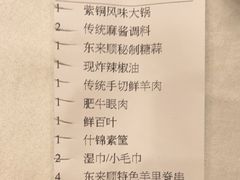 1 紫铜风味大锅
2 传统麻酱调料
1 东来顺秘制糖蒜
1 现炸辣椒油
1 传统手切鲜羊肉
1 肥牛眼肉
1 鲜百叶
1 什锦素筐
2 湿巾/小毛巾
4 东来顺特色羊里脊串